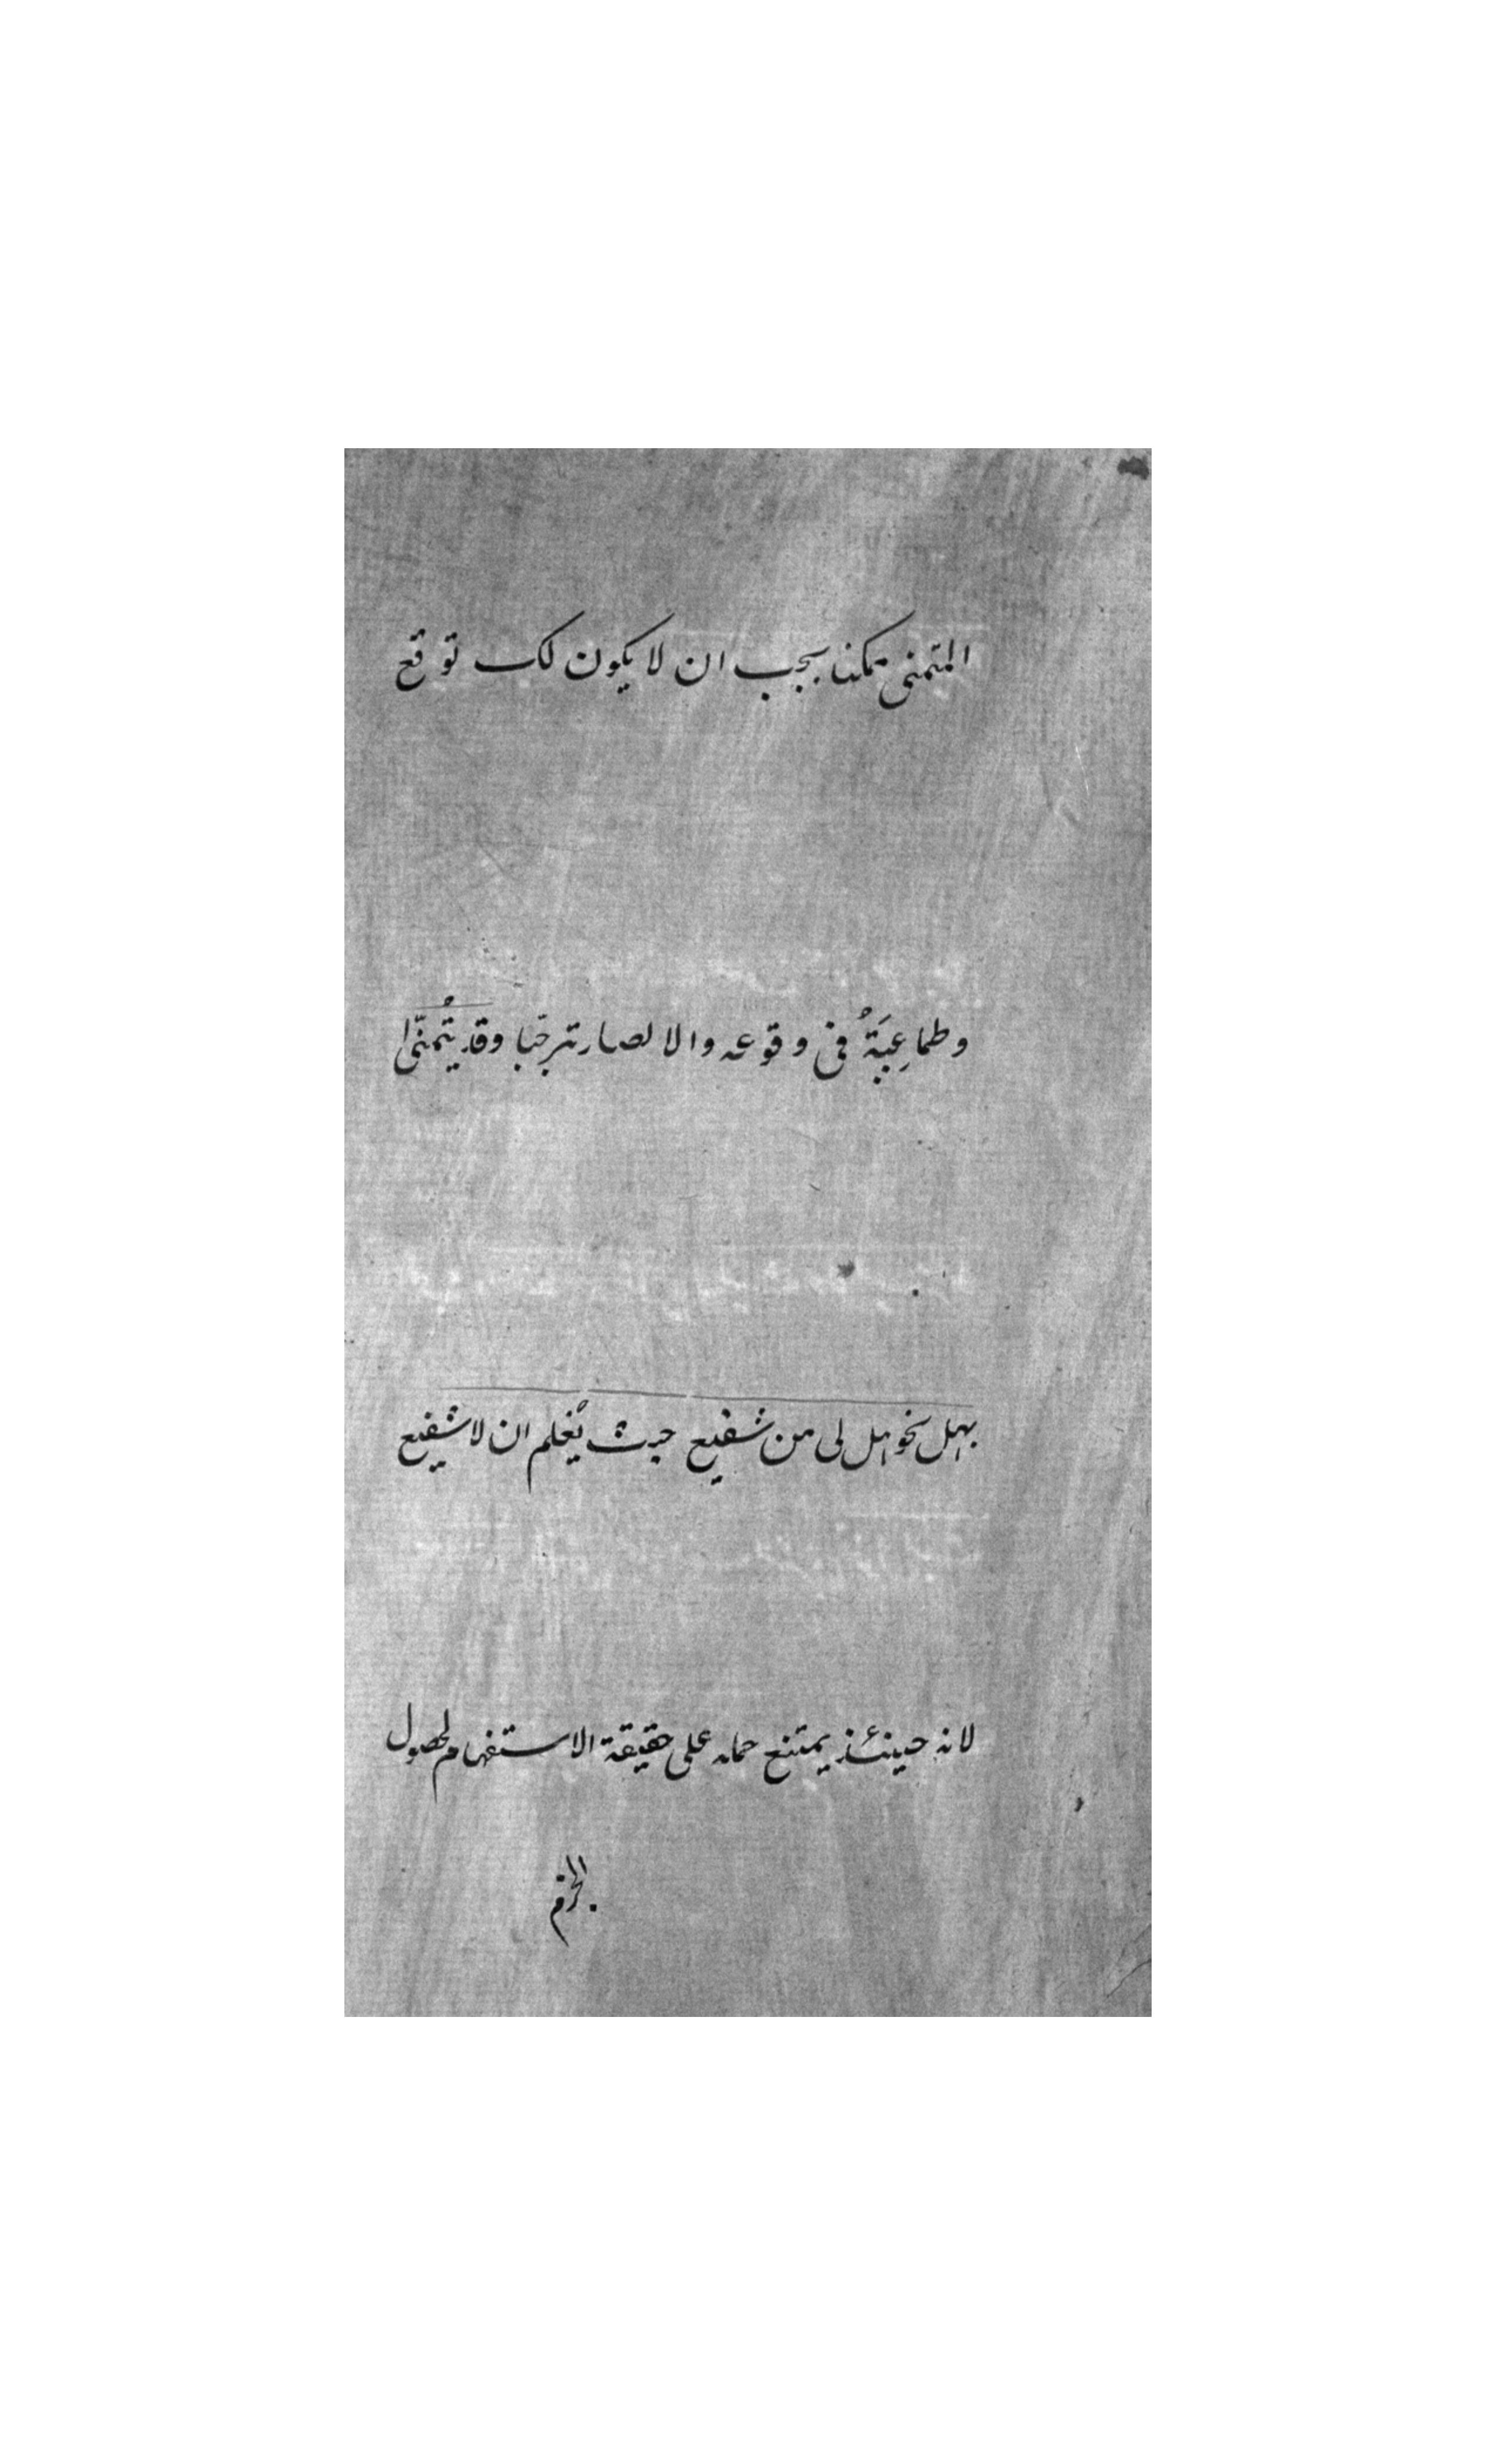 المتمنى ممكنا يجب ان لا يكون لك توقع
وطماعِيَةٌ فى وقوعه والا لصار ترجّيا وقد يُتمنّى
بهل نحو هل لى من شفيع حيث يُعْلم ان لا شفيع
لانه حينئذ يمتنع حمله على حقيقة الاستفهام لحصول
الجزم